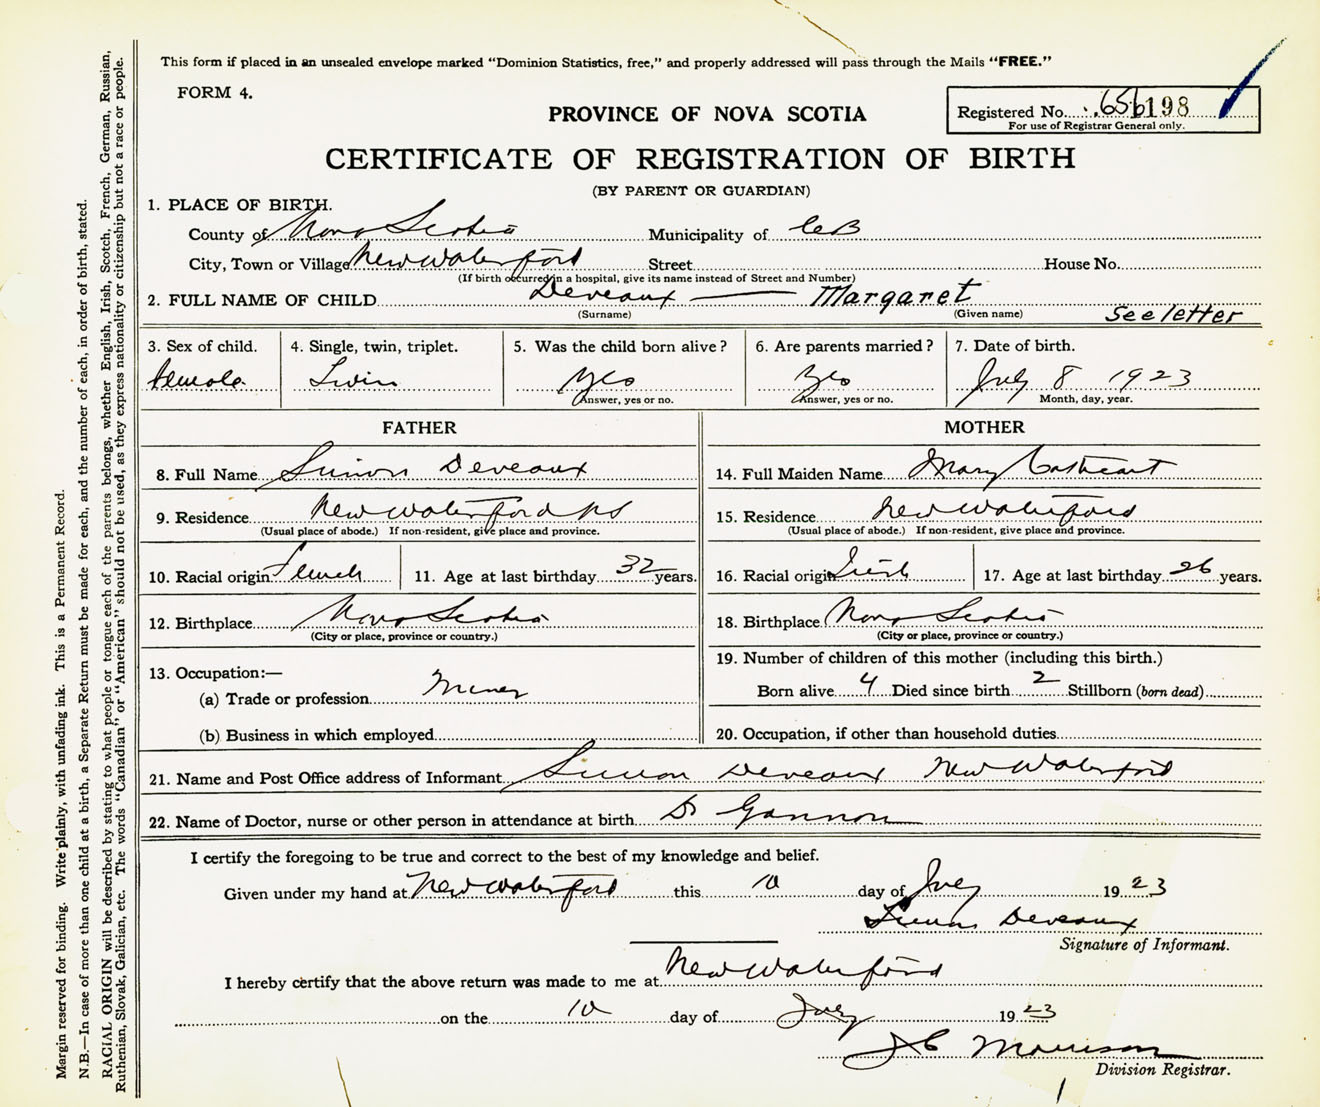 This form if placed in an unsealed envelope marked "Dominion Statistics, free," and properly addressed will pass through the Mails "FREE."
FORM 4.
PROVINCE OF NOVA SCOTIA
Registered No. 198
For use of Registrar General only.
CERTIFICATE OF REGISTRATION OF BIRTH
(BY PARENT OR GUARDIAN)
1. PLACE OF BIRTH.
County of Nova Scotia Municipality of CB
City, Town or Village New Waterford Street House No.
(If birth occurred in a hospital, give its name instead of Street and Number)
2. FULL NAME OF CHILD Deveaux — Margaret
(Surname) (Given name) See letter
3. Sex of child. 4. Single, twin, triplet. 5. Was the child born alive? 6. Are parents married? 7. Date of birth.
female Twin Yes Yes July 8 1923
Answer, yes or no. Answer, yes or no. Month, day, year.
FATHER MOTHER
8. Full Name Simon Deveaux 14. Full Maiden Name Mary Cathcart
9. Residence New Waterford NS 15. Residence New Waterford
(Usual place of abode.) If non-resident, give place and province. (Usual place of abode.) If non-resident, give place and province.
10. Racial origin French 11. Age at last birthday 32 years. 16. Racial origin Irish 17. Age at last birthday 26 years.
12. Birthplace Nova Scotia 18. Birthplace Nova Scotia
(City or place, province or country.) (City or place, province or country.)
13. Occupation:— 19. Number of children of this mother (including this birth.)
(a) Trade or profession Miner Born alive 4 Died since birth 2 Stillborn (born dead)
(b) Business in which employed 20. Occupation, if other than household duties
21. Name and Post Office address of Informant Simon Deveaux New Waterford
22. Name of Doctor, nurse or other person in attendance at birth Dr Gannon
I certify the foregoing to be true and correct to the best of my knowledge and belief.
Given under my hand at New Waterford this 10 day of July 1923
Simon Deveaux
Signature of Informant.
I hereby certify that the above return was made to me at New Waterford
on the 10 day of July 1923
J C Morrison
Division Registrar.
Margin reserved for binding. Write plainly, with unfading ink. This is a Permanent Record.
N.B.—In case of more than one child at a birth, a Separate Return must be made for each, and the number of each, in order of birth, stated.
RACIAL ORIGIN will be described by stating to what people or tongue each of the parents belongs, whether English, Irish, Scotch, French, German, Russian,
Ruthenian, Slovak, Galician, etc. The words "Canadian" or "American" should not be used, as they express nationality or citizenship but not a race or people.